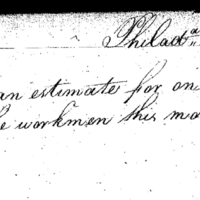 Philada
an estimate for on
e workmen this mo